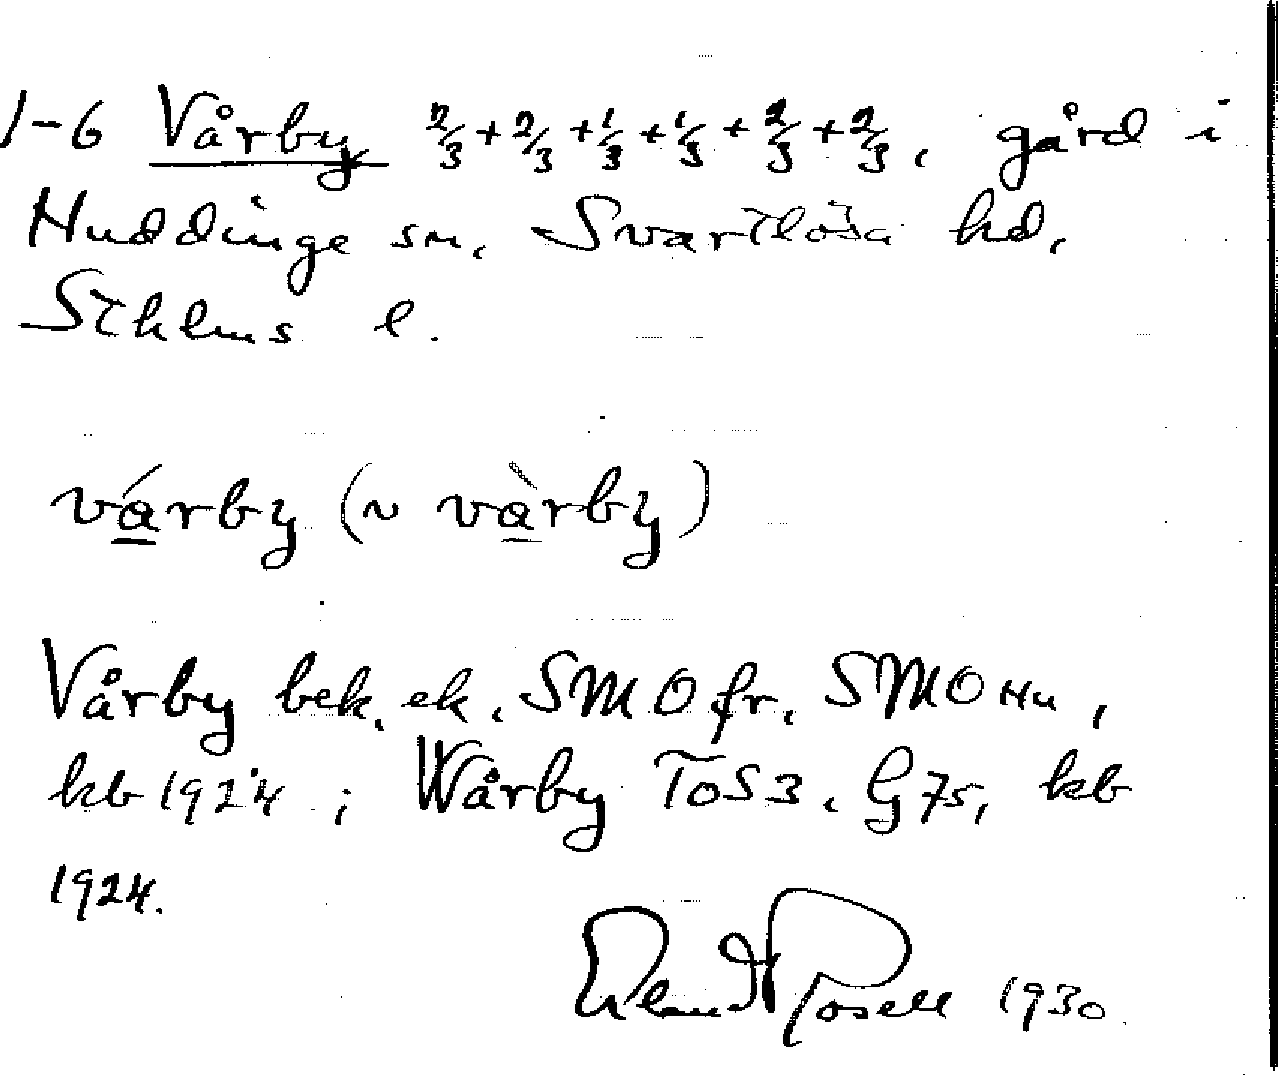 1-6 Vårby 2/3 + 2/3 + 1/3 + 1/3 + 2/3 + 2/3, gård i
Huddinge sn, Svartlösa hd,
Sthlms l.
vá̲rby (~ và̲rby)
Vårby bek. ek, SMOfr, SMOHu,
kb 1924; Wårby ToS3, G75, kb
1924.
Erland Rosell 1930